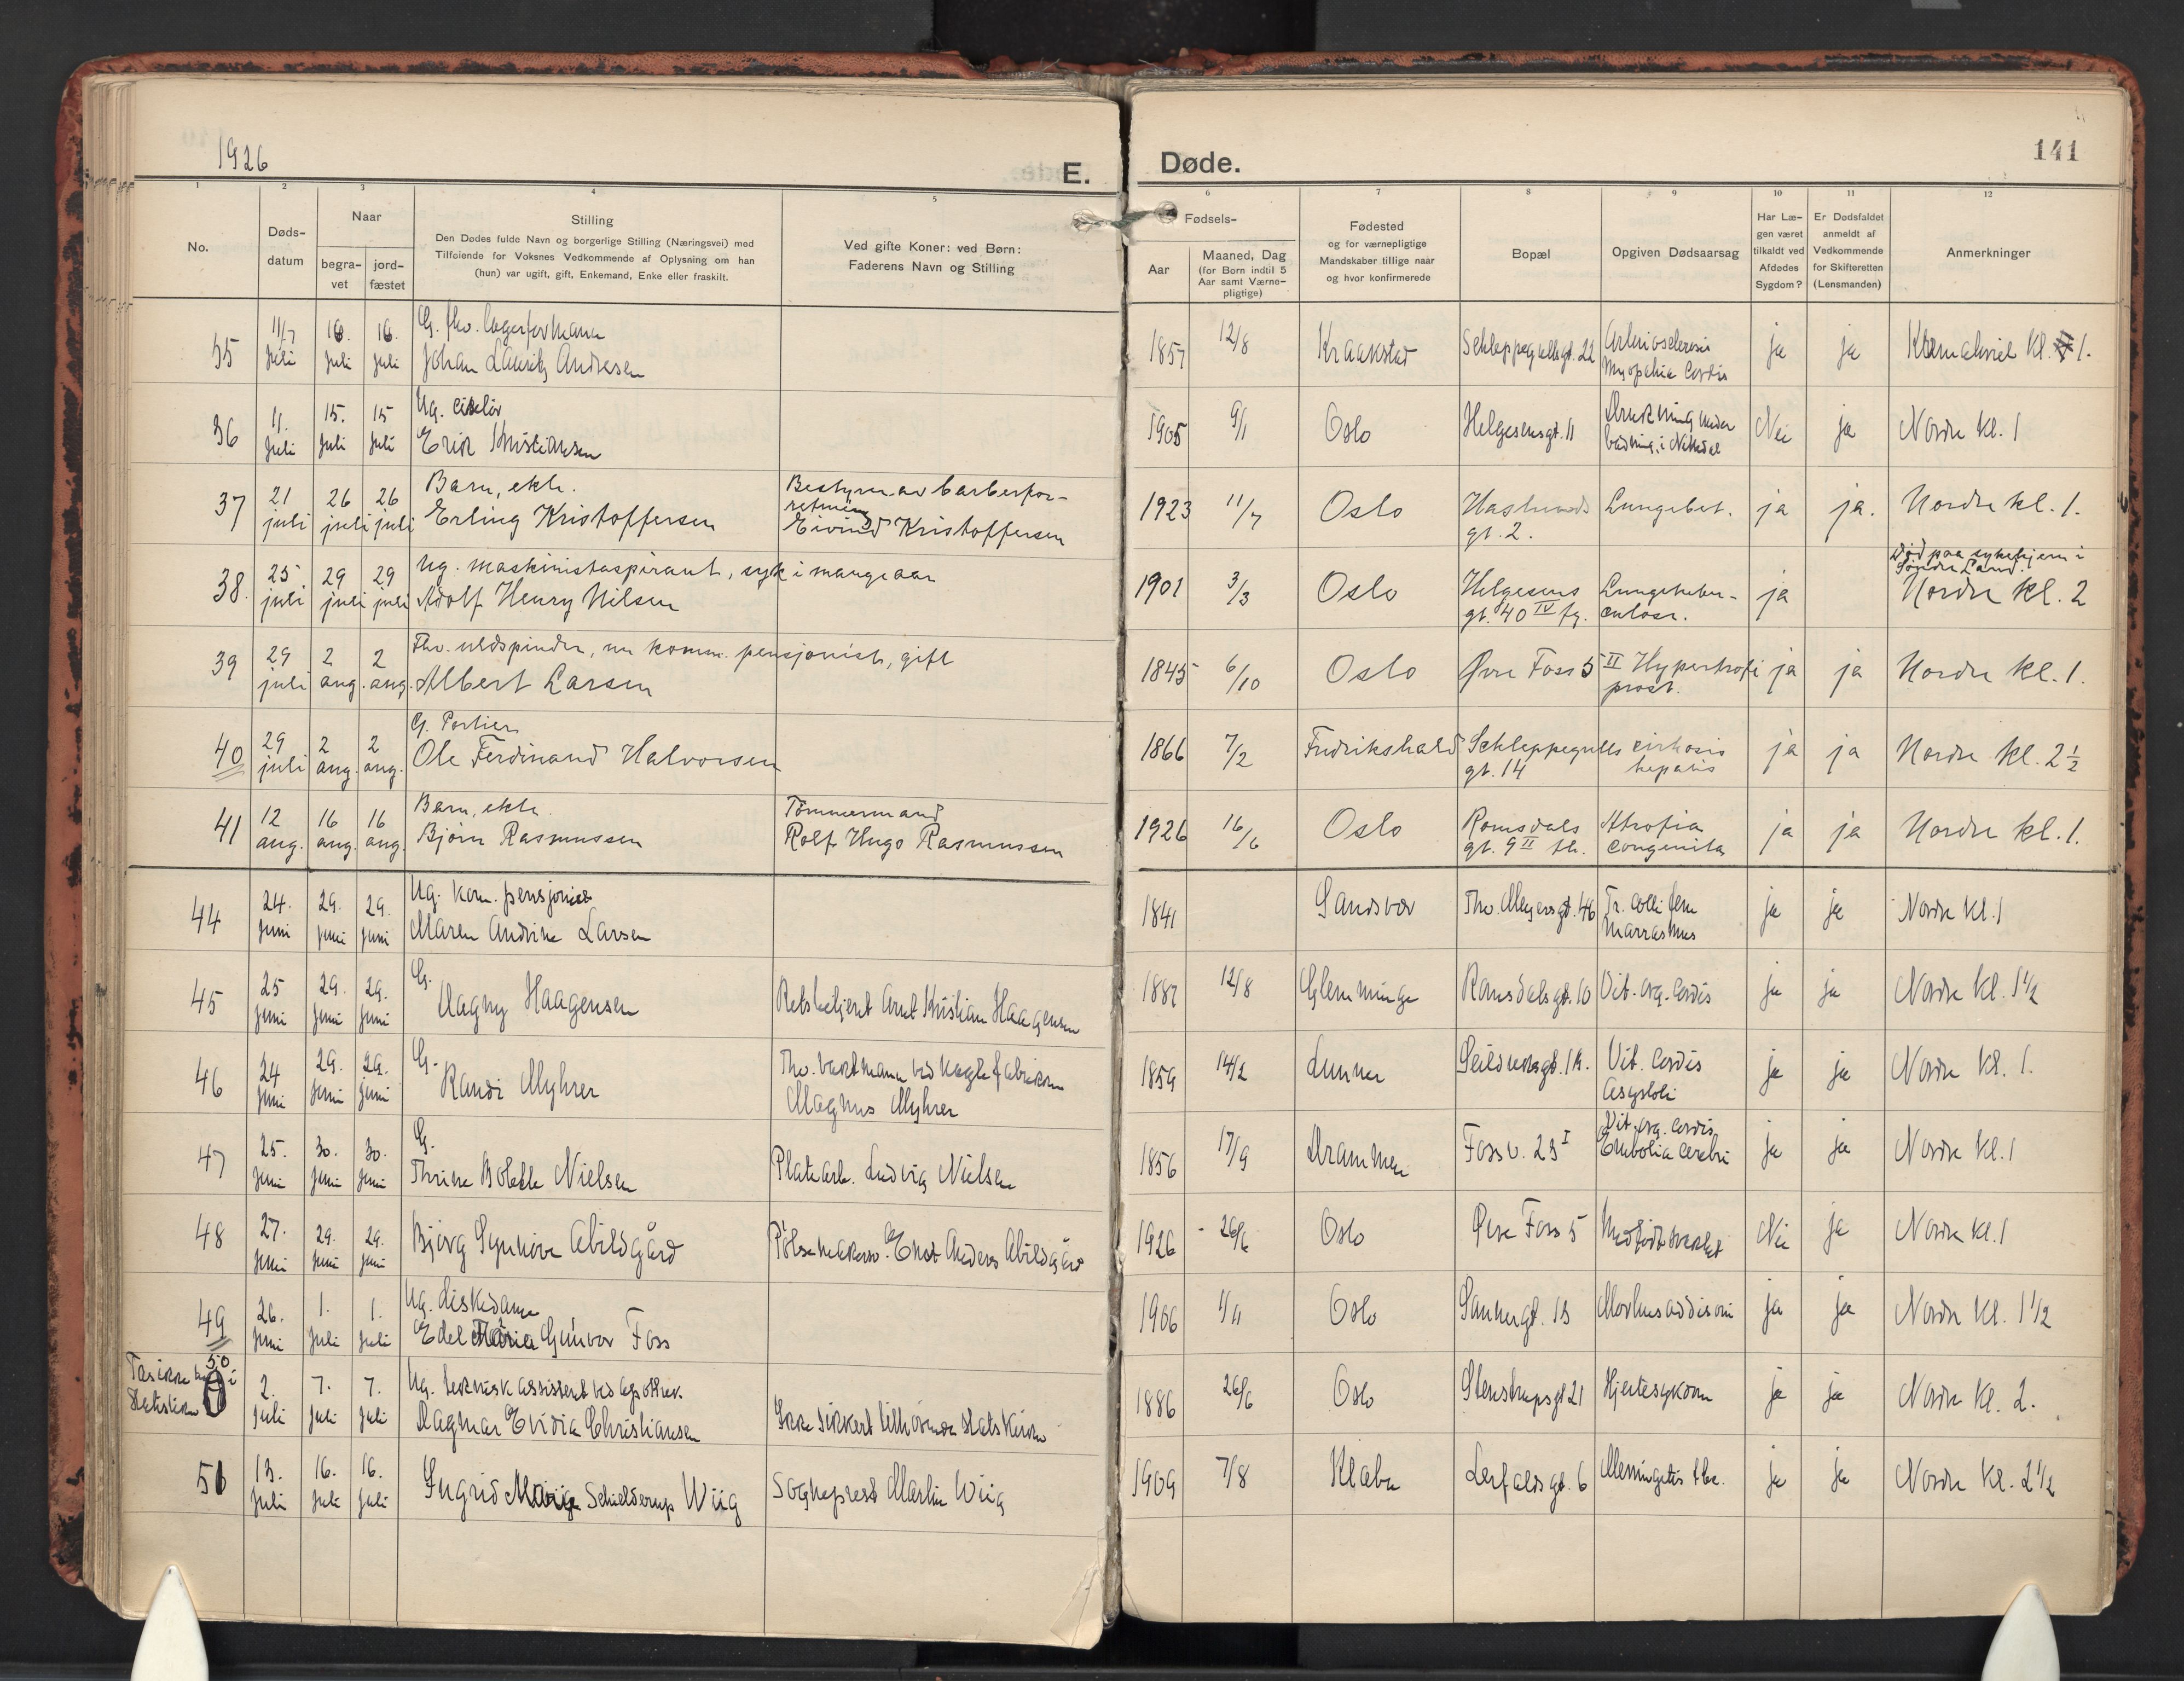 1926
E. Døde.
141
1 2 3 4 5 6 7 8 9 10 11 12
No.
Døds-
datum
Naar
begra-
vet
jord-
fæstet
Stilling
Den Dødes fulde Navn og borgerlige Stilling (Næringsvei) med
Tilføiende for Voksnes Vedkommende af Oplysning om han
(hun) var ugift, gift, Enkemand, Enke eller fraskilt.
Ved gifte Koner: ved Børn:
Faderens Navn og Stilling
Fødsels-
Aar
Maaned, Dag
(for Børn indtil 5
Aar samt Værne-
pligtige)
Fødested
og for værnepligtige
Mandskaber tillige naar
og hvor konfirmerede
Bopæl
Opgiven Dødsaarsag
Har Læ-
gen været
tilkaldt ved
Afdødes
Sygdom?
Er Dødsfaldet
anmeldt af
Vedkommende
for Skifteretten
(Lensmanden)
Anmerkninger
35 11/7 juli 16. juli 16. juli G. fhv. lagerformann
Johan Lauritz Andresen
1857 12/8 Kraakstad Schleppegrellsgt. 22 Arteriosclerosis
Myopathia Cordis
ja ja Krematoriet kl. 1.
36 11. juli 15. juli 15 juli Ug. Ciselør
Erik Kristiansen
1905 9/1 Oslo Helgesensgt. 11 Drukning under
badning i Nittedal
Nei ja Nordre kl. 1
37 21 juli 26 juli 26 juli Barn, ekte.
Erling Kristoffersen
Bestyrer av barberfor-
retning
Eivind Kristoffersen
1923 11/7 Oslo Haslunds
gt. 2.
Lungebet. ja ja. Nordre kl. 1.
38. 25. juli 29 juli 29 juli Ug. maskinistaspirant, syk i mange aar
Adolf Henry Nilsen
1901 3/3 Oslo Helgesens
gt. 40 IV
Lungetuber-
culose.
ja
Død paa sykehjem i
Søndre Land.
Nordre kl. 2
39 29 juli 2 aug. 2 aug. Fhv. uldspinder, nu komm. pensjonist, gift
Albert Larsen
1845 6/10 Oslo Øvre Foss 5 II Hypertrofi
prost.
ja ja Nordre kl. 1.
40 29 juli 2 aug. 2 aug. G. Portier
Ole Ferdinand Halvorsen
1866 7/2 Fredrikshald Schleppegrells
gt. 14
cirhosis
hepatis
ja ja Nordre kl. 2 1/2
41 12 aug. 16 aug. 16 aug. Barn, ekte.
Bjørn Rasmussen
Tømmermand
Rolf Hugo Rasmussen
1926 16/6 Oslo Romsdals
gt. 9 II th.
Atrofia
congenita
ja ja Nordre kl. 1.
44 24. juni 29. juni 29. juni Ug. kom. pensjonist
Maren Andrine Larsen
1841 Sandsvær Thv. Meyersgt. 46 Fr. colli fem
Marrasmus
ja ja Nordre kl. 1
45 25 juni 29. juni 29. juni G.
Dagny Haagensen
Retsbetjent Arnt Kristian Haagensen
1887 12/8 Glemminge Romsdalsgt. 10 Vit. org. Cordis ja ja Nordre kl. 1 1/2
46 24 juni 29. juni 29. juni G.
Randi Myhrer
Fhv. vaktmann ved Nagle fabrikken
Magnus Myhrer
1859 14/2 Lunner Seildugsgt. Vit. Cordis
Asystoli
ja ja Nordre kl. 1.
47 25. juni 30. juni 30. juni G.
Thrine Bolette Nielsen
Platearb. Ludvig Nielsen
1856 17/9 Drammen Fossv. 23 I Vit. org. cordis
Embolia cerebri
ja ja Nordre kl. 1
48 27. juni 29. juni 29. juni Bjørg Synnøve Abildgård
Pølsemakersv. Ernst Anders Abildgård
1926 26/6 Oslo Øvre Foss 5 Medfødt svakhet Nei ja Nordre kl. 1
49 26. juni 1. juli 1. juli Ug. diskedame
Edel Maria Gunvor Foss
1906 1/11 Oslo Sannergt. 13 Morbus addisoni ja ja Nordre kl. 1 1/2
Tas ikke med i
Statistikken
50 2. juli 7. juli 7. juli Ug. teknisk assistent ved apothek.
Dagmar Evidia Christiansen
Ikke sikkert tilhørende Statskirken
1886 26/6 Oslo Stenstrupsgt 21 Hjertesykdom ja ja Nordre kl. 2.
51 13. juli 16. juli 16. juli Ingrid Marie Schielderup Wiig
Sogneprest Martin Wiig
1909 7/8 Klæbu Lerfaldsgt. 6 Meningitis tbc. ja ja Nordre kl. 2 1/2